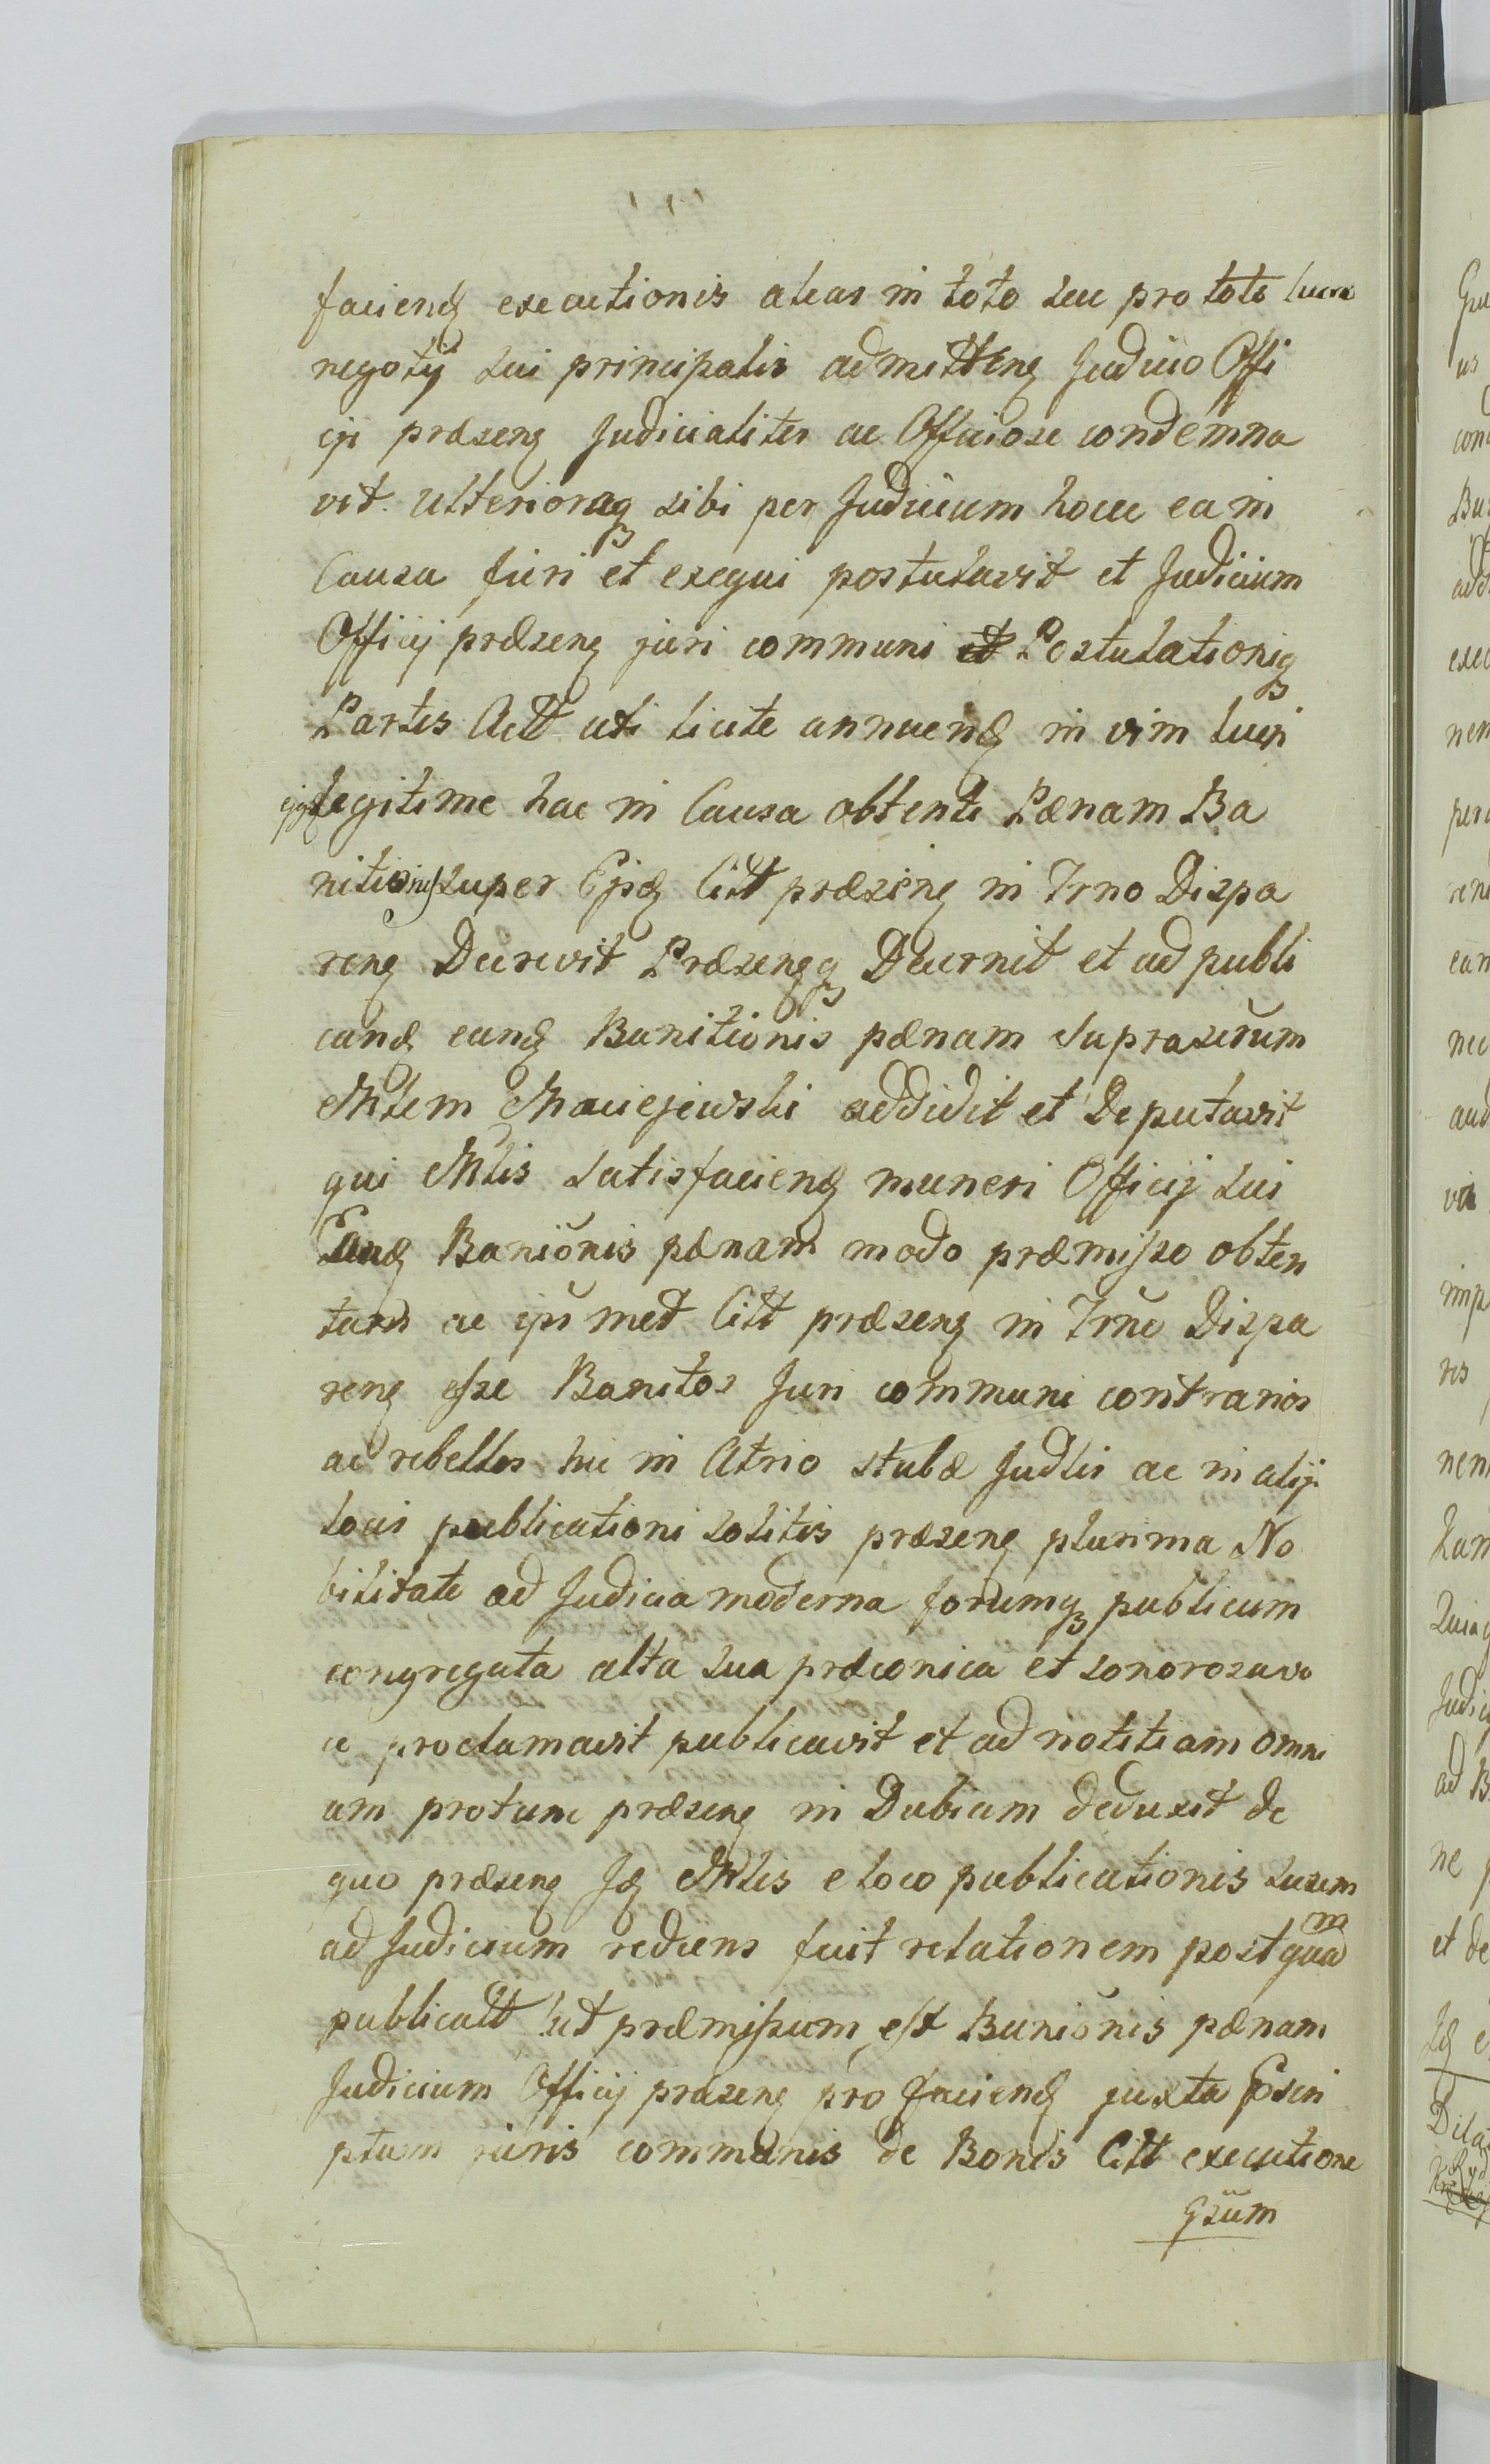 faciend executionis alias in toto seu pro toto lucro
negotij sui principalis admitten Judicio Offi
cji præsen Judicialiter ac Officiose condemna
vit. Ulterioraq sibi per Judicium hocce ea in
Causa fieri et exequi postulavit et Judicium
Officij præsen juri communi Postulationiq
Partis Actt uti licite annuend in vim lucri
legitime hac in Causa obtenti Pænam Ba
nitionis super Ejsd Citt præsen in Trno Dispa
ren Decrevit Præsenq Decernit et ad publi
cand eand Banitionis pænam suprascrum
Mlem Maciejewski addidit et Deputavit
qui Mlis satisfaciend muneri Officij sui
Eand Baniõnis pænam modo præmisso obten
tam ac ipsmet Citt præsen in Trno Dispa
ren esse Banitos Juri communi contrarios
ac rebelles hic in Atrio stubæ Judlis ac in alijs
locis publicationi solitis præsen plurima No
bilitate ad Judicia moderna forumq publicum
congregata alta sua præconica et sonorosa vo
ce proclamavit publicavit et ad notitiam omni
um protunc præsen in Dubium deduxit de
quo præsen Id Mlis e loco publicationis suæm
ad Judicium rediens fecit relationem postquam
publicatt ut præmissum est Baniõnis pænam
Judicium Officij præsen pro faciend juxta Pscri
ptum juris communis de Bonis Citt executione
Gsum